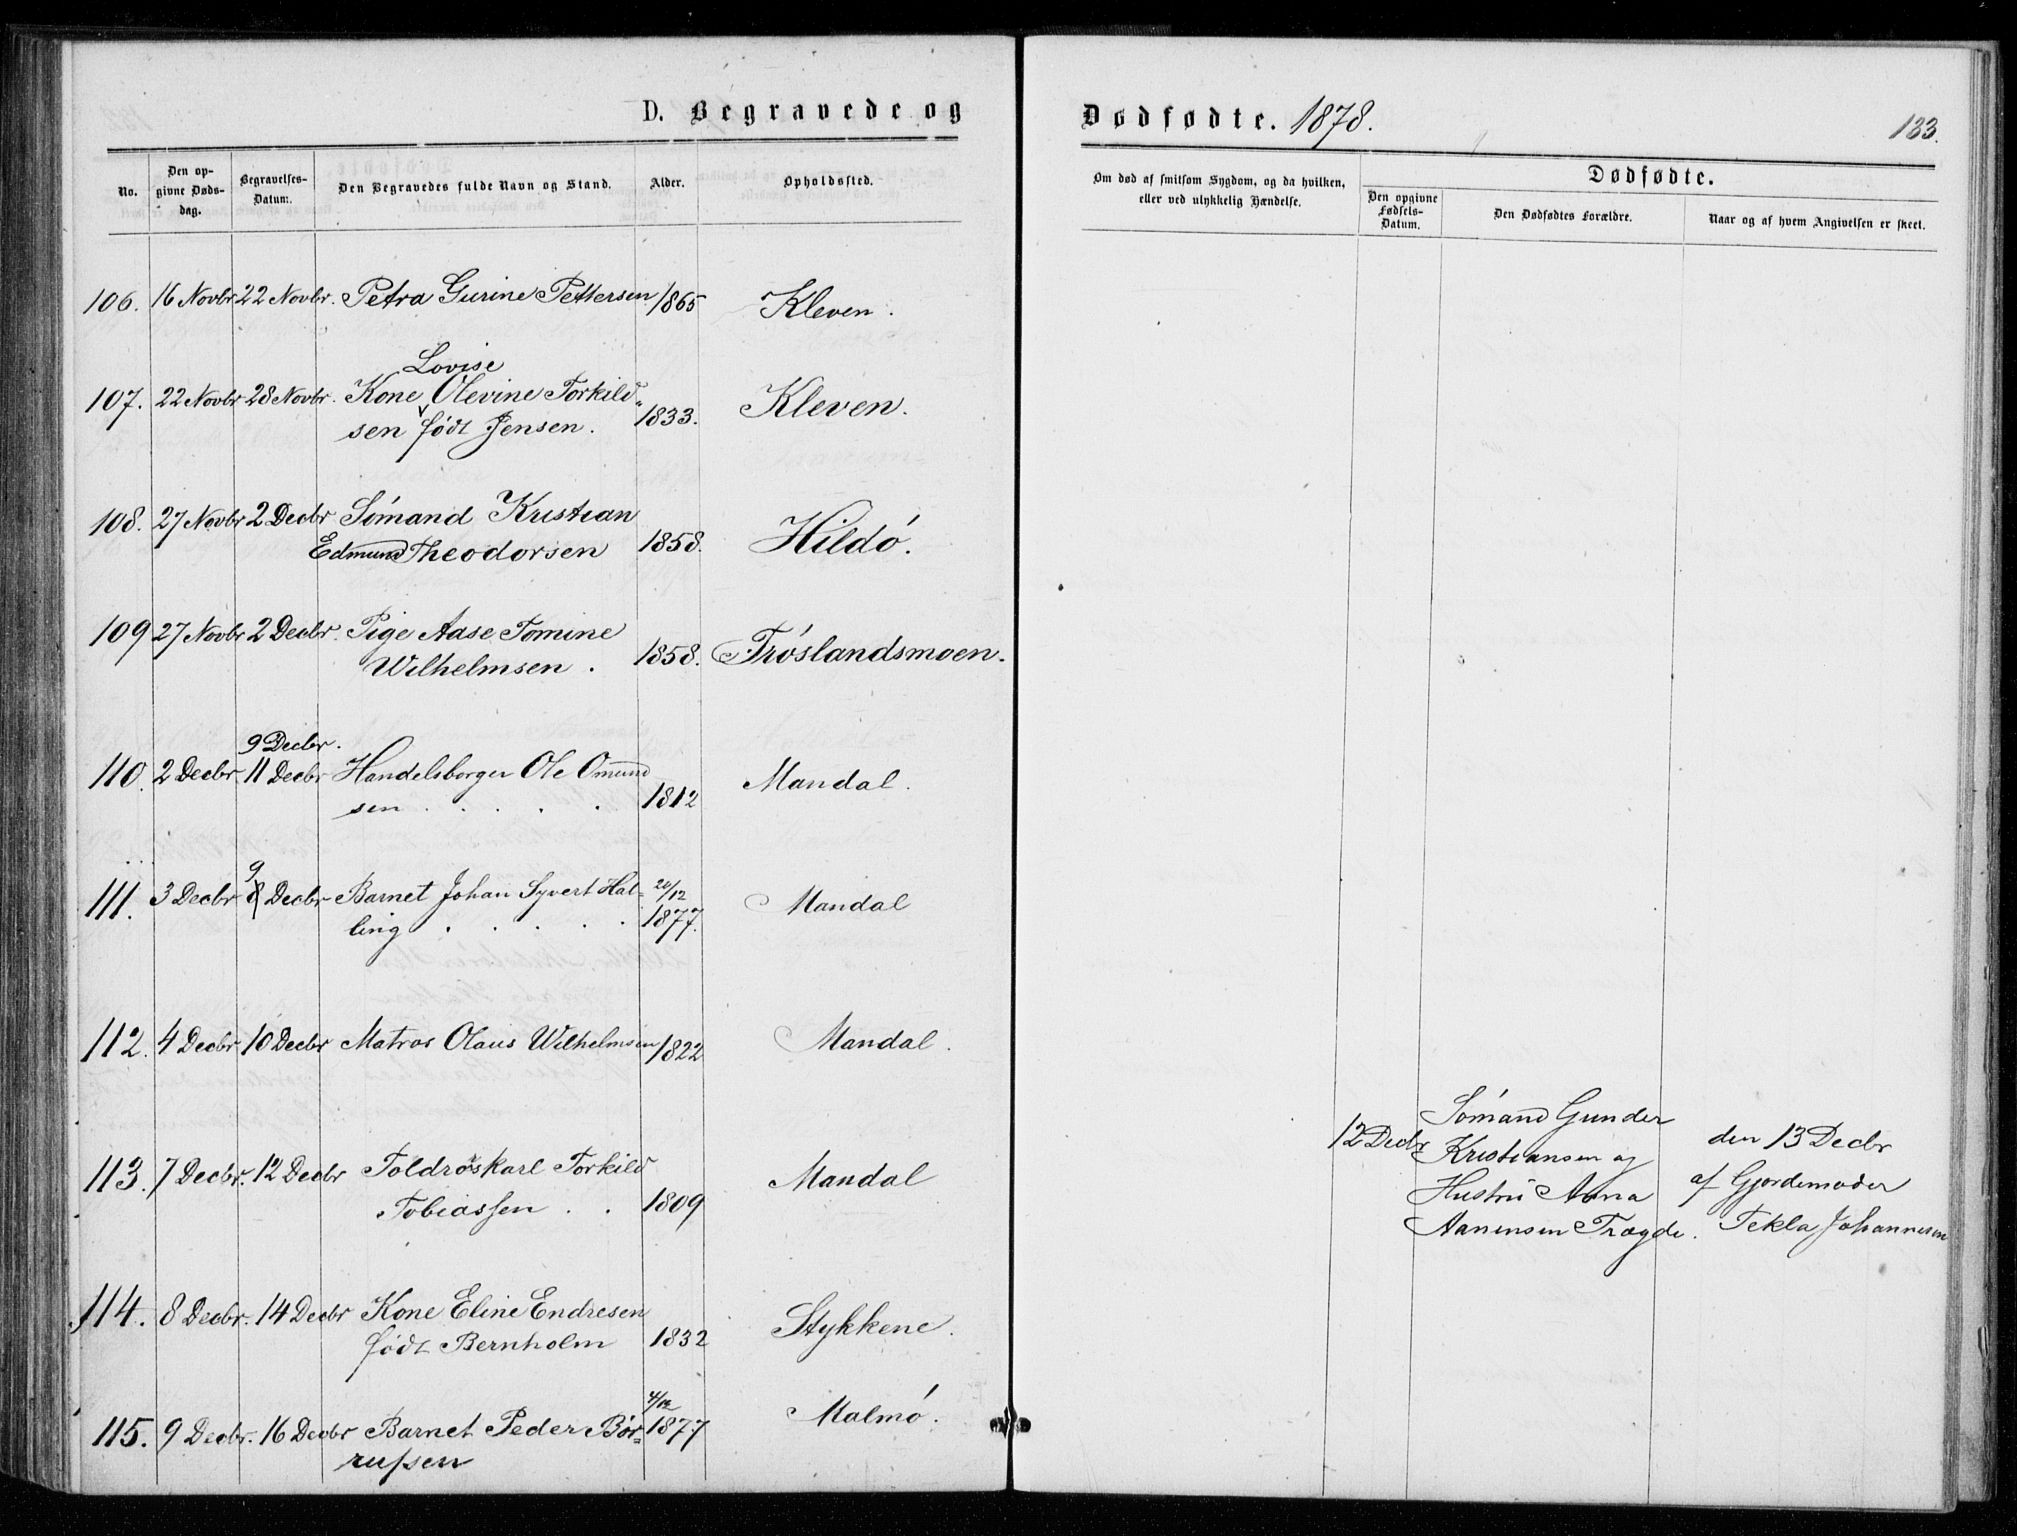 D. Begravede og
Dødfødte. 1878.
133.
No.
Den opgivne Dødsdag.
Begravelses-Datum.
Den Begravedes fulde Navn og Stand.
Alder.
Opholdssted.
Om død af smitsom Sygdom, og da hvilken, eller ved ulykkelig Hændelse.
Dødfødte.
Den opgivne Fødsels-Datum.
Den Dødfødtes Forældre.
Naar og af hvem Angivelsen er skeet.
106. 16 Novbr 22 Novbr. Petra Gurine Pettersen 1865 Kleven.
Lovise
107. 22 Novbr 28 Novbr. Kone Olevine Torkild-
sen født Jensen. 1833. Kleven.
108. 27 Novbr 2 Decbr Sømand Kristian
Edmund Theodorsen 1858. Hildø.
109 27 Novbr 2 Decbr. Pige Aase Tomine
Wilhelmsen. 1858. Trøslandsmoen.
9 Decbr.
110. 2 Decbr 11 Decbr Handelsborger Ole Omund
sen . . . . 1812 Mandal.
9
111. 3 Decbr 8 Decbr Barnet Johan Syvert Hal- 20/12
ling . . . . . 1877. Mandal
112. 4 Decbr 10 Decbr Matros Olaus Wilhelmsen 1822 Mandal.
113. 7 Decbr. 12 Decbr Toldroskarl Torkild
Tobiassen . . 1809 Mandal
12 Decbr
Sømand Gunder
Kristiansen og
Hustru Anna
Aanensen Trægde.
den 13 Decbr
af Gjordemoder
Tekla Johannesen
114. 8 Decbr. 14 Decbr Kone Eline Endresen
født Bernholm 1832 Stykkene.
4/12
115. 9 Decbr. 16 Decbr Barnet Peder Bør- 1877 Malmø.
rufsen